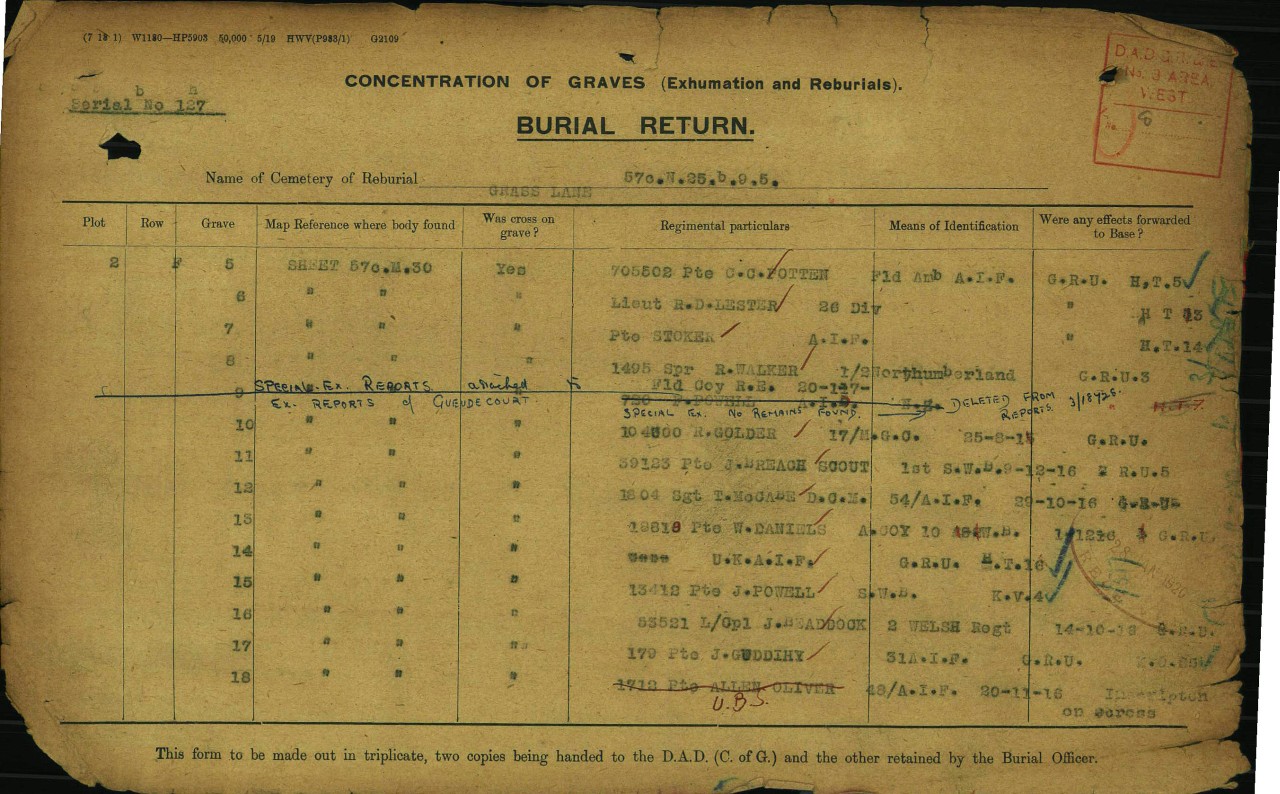 (7 18 1) W1180—HP5903 50,000 5/19 HWV(P988/1) G2109
CONCENTRATION OF GRAVES (Exhumation and Reburials).
D.A.D.G.R.&E.
No. 3 AREA
WEST
8
b h
Serial No 127
BURIAL RETURN.
Name of Cemetery of Reburial GRASS LANE 57c.N.25.b.9.5.
Plot Row Grave Map Reference where body found Was cross on grave? Regimental particulars Means of Identification Were any effects forwarded to Base?
2 F 5 SHEET 57c.M.30 Yes 705502 Pte C.C.POTTEN Fld Amb A.I.F. G.R.U. H.T.5
6 " " " Lieut R.D.LESTER 26 Div " H T 13
7 " " " Pte STOKER A.I.F. " H.T.14
8 " " " 1495 Spr R.WALKER 1/2 Northumberland G.R.U.3
Fld Coy R.E.
9 SPECIAL. EX. REPORTS attached to 720 P.POWELL
EX. REPORTS of GUEUDECOURT. SPECIAL EX. NO REMAINS FOUND. DELETED FROM REPORTS.
10 " " " R.GOLDER 17/M.G.C. G.R.U.
11 " " " 39123 Pte J.BREACH SCOUT 1st S.W.B. 9-12-16 R.U.5
12 " " " 1804 Sgt T.McCABE D.C.M. 54/A.I.F. 29-10-16 G.R.U.
13 " " " 18818 Pte W.DANIELS A.COY 10 S.W.B. G.R.U.
14 " " " U.K.A.I.F. G.R.U. H.T.16
15 " " " 13412 Pte J.POWELL S.W.B. K.V.4
16 " " " 53521 L/Cpl J.BEADDOCK 2 WELSH Regt G.R.U.
17 " " " 179 Pte J.GUDDIHY 31A.I.F. G.R.U.
18 " " " 1712 Pte ALLEN OLIVER 48/A.I.F. 20-11-16 Inscription
U.B.S. on cross
This form to be made out in triplicate, two copies being handed to the D.A.D. (C. of G.) and the other retained by the Burial Officer.